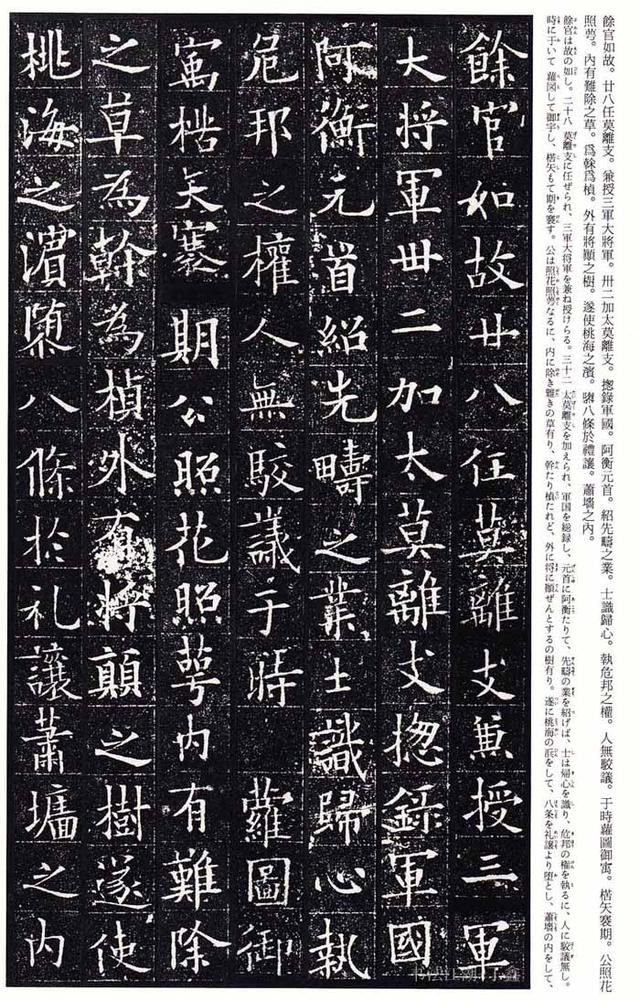 餘官如故。廿八任莫離支。兼授三軍大將軍。卅二加太莫離支。揔錄軍國。阿衡元首。紹先疇之業。士識歸心。執危邦之權。人無駮議。于時蘿圖御寓。楛矢褰期。公照花
照萼。內有難除之草。爲榦爲楨。外有將顚之樹。遂使桃海之濱。隳八條於禮讓。蕭墻之內。
餘官は故の如し。二十八 莫離支に任ぜられ、三軍大将軍を兼ね授けらる。三十二 太莫離支を加えられ、軍国を総録し、元首に阿衡たりて、先疇の業を紹げば、士は帰心を識り、危邦の権を執るに、人に駮議無し。
時に于いて 蘿図して御宇し、楛矢もて期を褰す。公は照花照萼なるに、内に除き難きの草有り、幹たり楨たれど、外に将に顚ぜんとするの樹有り。遂に桃海の浜をして、八条を礼譲より堕とし、蕭墻の内をして、
餘官如故廿八任莫離支兼授三軍
大将軍丗二加太莫離支揔錄軍國
阿衡元首紹先疇之業士識歸心執
危邦之權人無駮議于時 蘿圖御
寓楛矢褰 期公照花照萼内有難除
之草為榦為楨外有將顚之樹遂使
桃海之濱隳八條於礼讓蕭墻之内